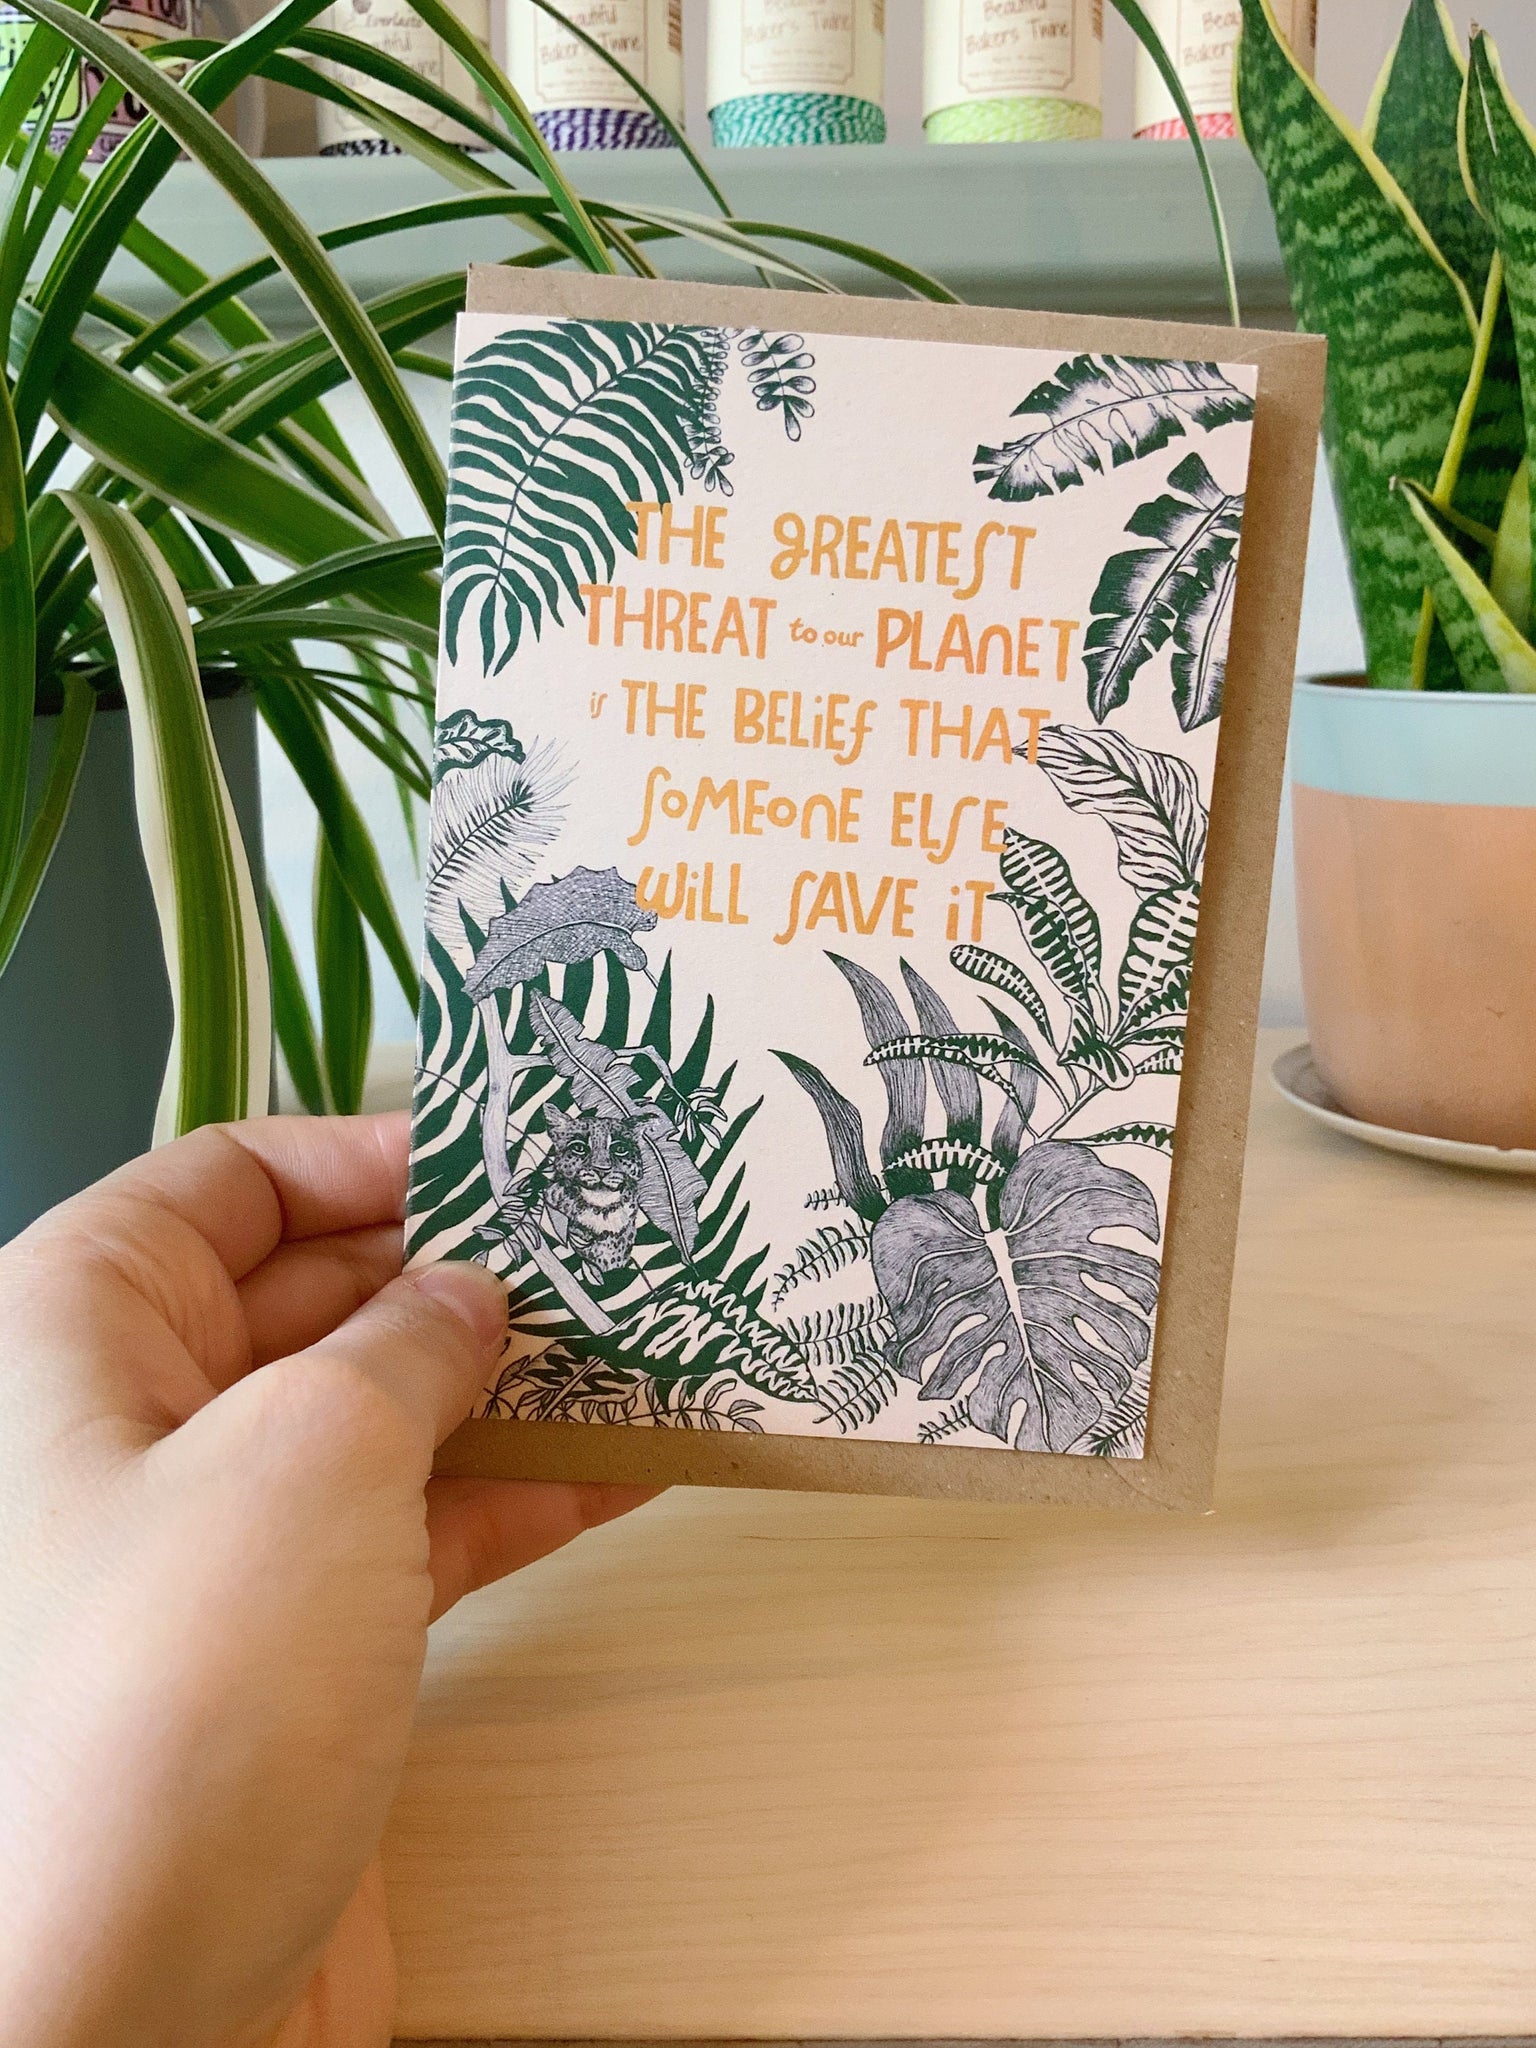 Everlasto
Beautiful
Baker's Twine
Beautiful
Baker's Twine
Beautiful
Baker's Twine
THE GREATEST
THREAT to our PLANET
is THE BELIEF THAT
SOMEONE ELSE
WILL SAVE IT